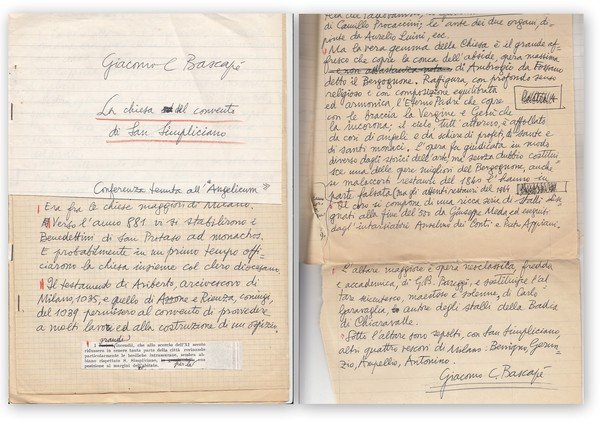 Giacomo C. Bascapè
La chiesa del convento
di San Simpliciano
Conferenza tenuta all'"Angelicum"
Era fra le chiese maggiori di Milano.
Verso l'anno 881 vi si stabilirono i
Benedettini di San Protaso ad monachos.
E probabilmente in un primo tempo offi-
ciarono la chiesa insieme col clero diocesano.
Il testamento di Ariberto, arcivescovo di
Milano, 1035, e quello di Azzone e Rienza, coniugi,
del 1039 permisero al convento di provvedere
a molti lavori ed alla costruzione di un ospizio.
grandi
I incendi, che allo scorcio dell'XI secolo
ridussero in cenere tanta parte della città rovinando
particolarmente le basiliche intramurane, sembra ab-
biano rispettato S. Simpliciano,
per la
posizione ai margini dell'abitato.
di Camillo Procaccini; le ante dei due organi, di-
pinte da Aurelio Luini, ecc.
Ma la vera gemma della Chiesa è il grande af-
fresco che copre la conca dell'abside opera massima
e non abbastanza nota di Ambrogio da Fossano
detto il Bergognone. Raffigura con profondo senso
religioso e con composizione equilibrata
ed armonica l'Eterno Padre che copre
con le braccia la Vergine e Gesù che
la incorona; il cielo tutt'attorno, è affollato
da cori di angeli e da schiere di profeti, di sante e
di santi monaci. L'opera fu giudicata in modo
diverso dagli storici dell'arte, ma senza dubbio costitui
sce una delle opere migliori del Bergognone, anche
se malaccorti restauri del 1840 l'hanno in
parte falsata
Il coro si compone di una ricca serie di stalli di-
segnati alla fine del 500 da Giuseppe Meda ed eseguiti
dagl'intarsiatori Anselmo dei Conti e Appiani.
L'altare maggiore è opera neoclassica, fredda
e accademica, di G.B. e sostituisce l'al
tar secentesco, maestoso e solenne, di Carlo
Garavaglia, autore degli stalli della Badia
di Chiaravalle.
Sotto l'altare sono sepolti, con San Simpliciano
altri quattro vescovi di Milano: Benigno, Geron-
zio, Ampellio, Antonino.
Giacomo C. Bascapè